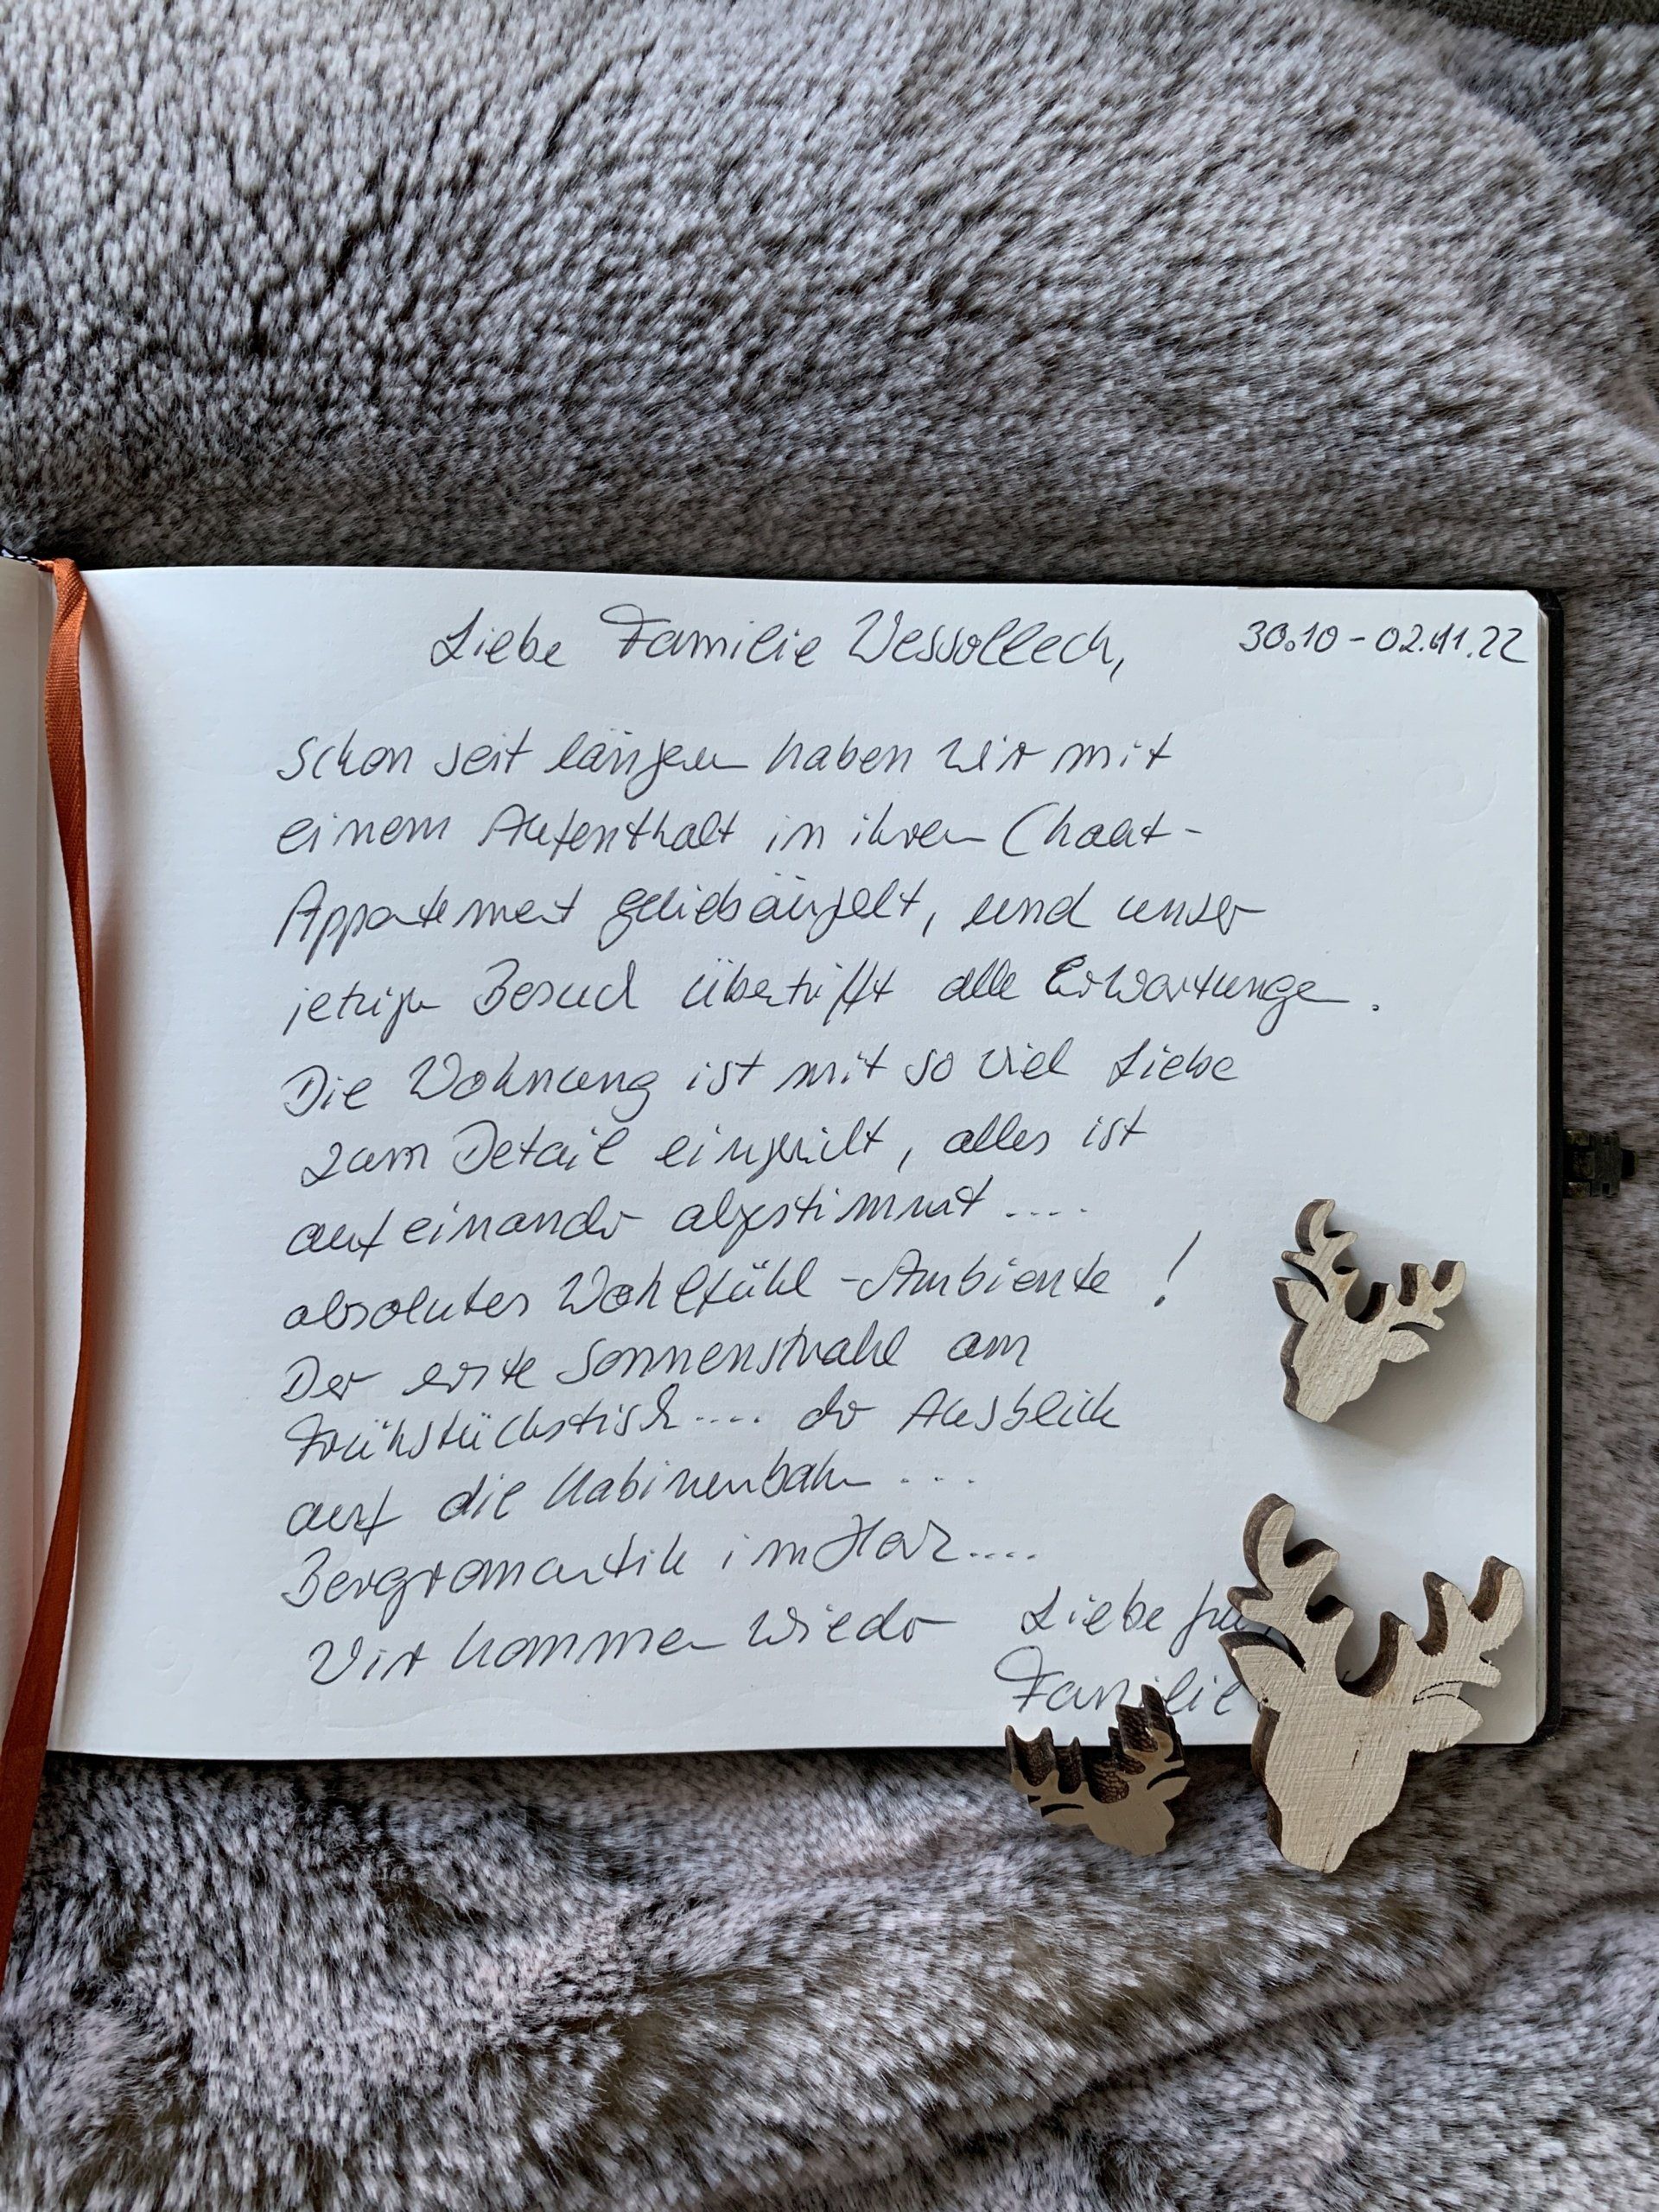 Liebe Familie Wessolleck, 30.10 - 02.11.22
Schon seit längeren haben wir mit
einem Aufenthalt in ihren Chalet-
Appartement geliebäugelt, und unser
jetziger Besuch übertrifft alle Erwartungen.
Die Wohnung ist mit so viel Liebe
zum Detail eingericht, alles ist
auf einander abgestimmt....
absolutes Wohlfühl-Ambiente!
Der erste Sonnenstrahl am
Frühstückstisch.... der Ausblick
auf die Kabinenbahn....
Bergromantik im Harz....
Wir kommen wieder Liebe
Familie